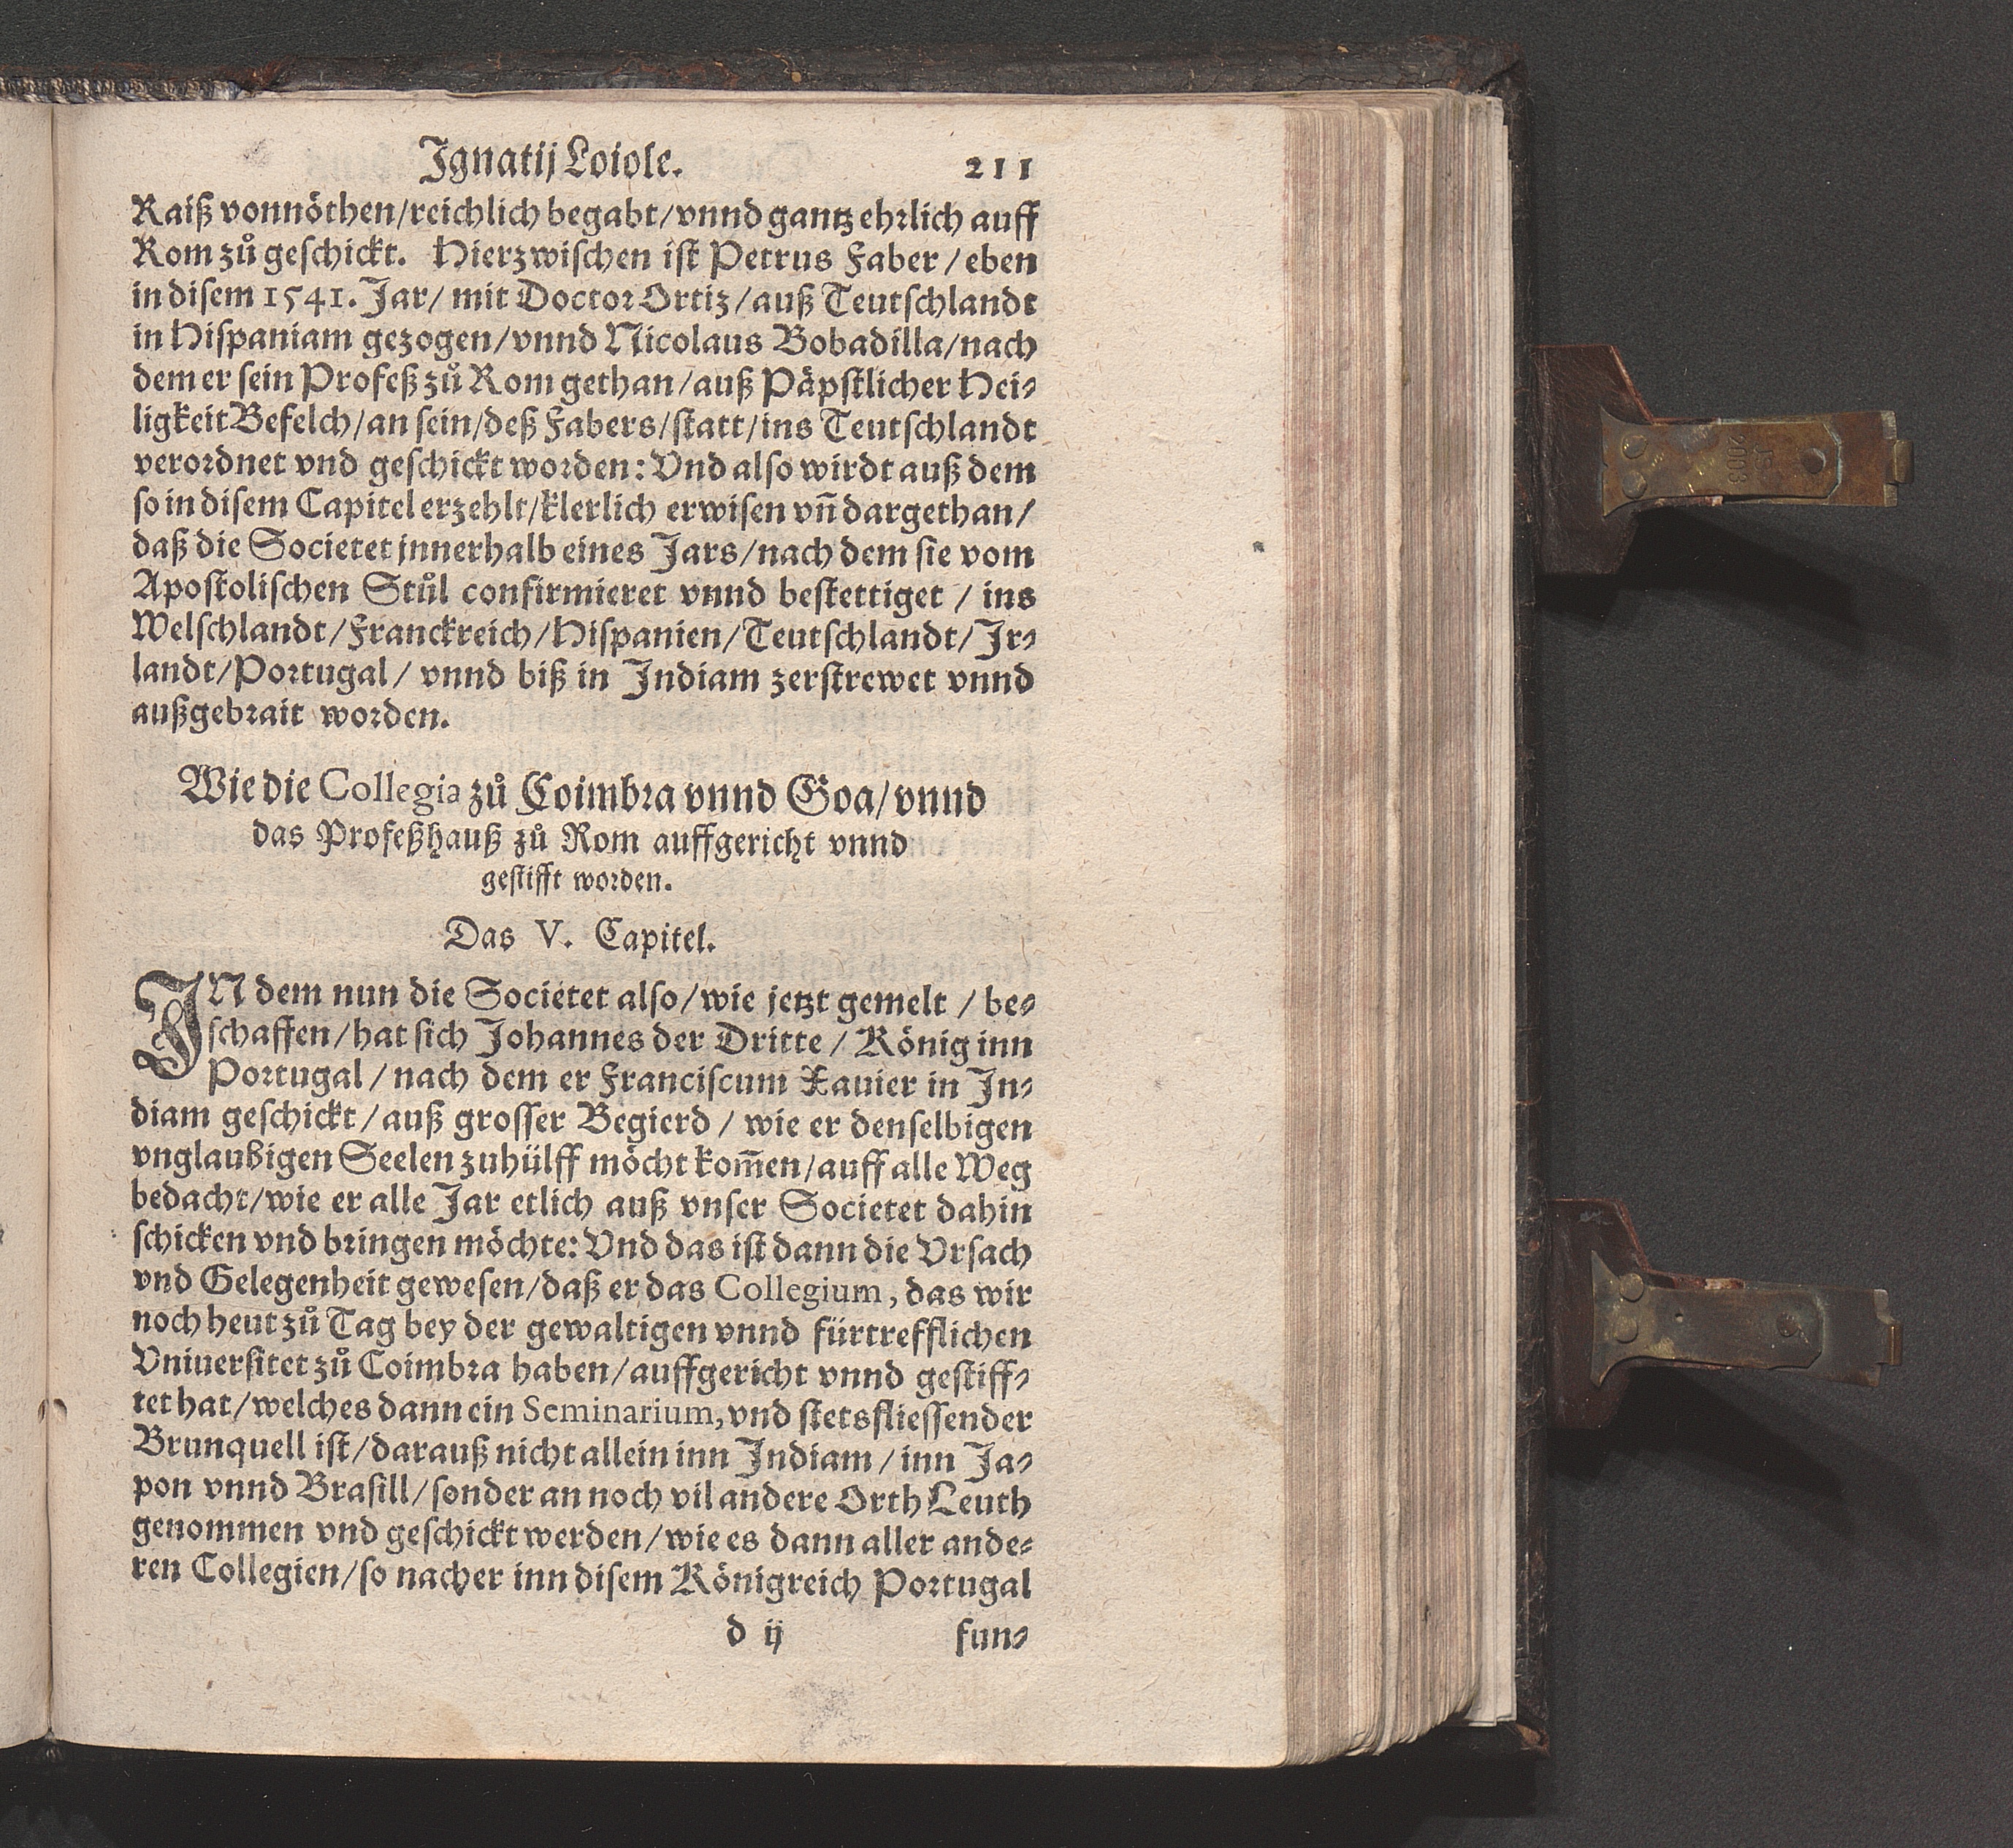 Ignatij Loiole. 211
Raiß vonnöthen/reichlich begabt/vnnd gantz ehrlich auff
Rom zů geschickt. Hierzwischen ist Petrus Faber/eben
in disem 1541. Jar/ mit Doctor Ortiz/auß Teutschlandt
in Hispaniam gezogen/vnnd Nicolaus Bobadilla/nach
dem er sein Profeß zů Rom gethan/auß Päpstlicher Hei-
ligkeit Befelch/an sein/deß Fabers/statt/ins Teutschlandt
verordnet vnd geschickt worden: Vnd also wirdt auß dem
so in disem Capitel erzehlt/klerlich erwisen vñ dargethan/
daß die Societet jnnerhalb eines Jars/nach dem sie vom
Apostolischen Stůl confirmieret vnnd bestettiget / ins
Welschlandt/Franckreich/Hispanien/Teutschlandt/Ir-
landt/Portugal/ vnnd biß in Indiam zerstrewet vnnd
außgebrait worden.
Wie die Collegia zů Coimbra vnnd Goa/vnnd
das Profeßhauß zů Rom auffgericht vnnd
gestifft worden.
Das V. Capitel.
IN dem nun die Societet also/wie jetzt gemelt / be-
schaffen/hat sich Johannes der Dritte / König inn
Portugal / nach dem er Franciscum Xauier in In-
diam geschickt/auß grosser Begierd / wie er denselbigen
vnglaubigen Seelen zuhülff möcht kom̃en/auff alle Weg
bedacht/wie er alle Jar etlich auß vnser Societet dahin
schicken vnd bringen möchte: Vnd das ist dann die Vrsach
vnd Gelegenheit gewesen/daß er das Collegium, das wir
noch heut zů Tag bey der gewaltigen vnnd fürtrefflichen
Vniuersitet zů Coimbra haben/auffgericht vnnd gestiff-
tet hat/welches dann ein Seminarium, vnd stetsfliessender
Brunquell ist/darauß nicht allein inn Indiam / inn Ja-
pon vnnd Brasill/sonder an noch vil andere Orth Leuth
genommen vnd geschickt werden/wie es dann aller ande-
ren Collegien/so nacher inn disem Königreich Portugal
d ij fun-